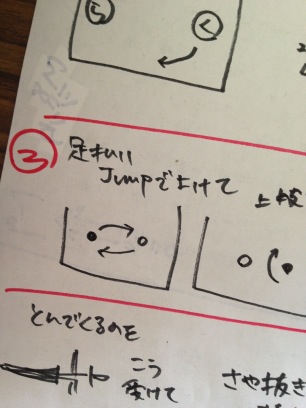 ら
く
③ 足払い
Jumpでよけて
上段
とんでくるのを
こう
受けて
さや抜き